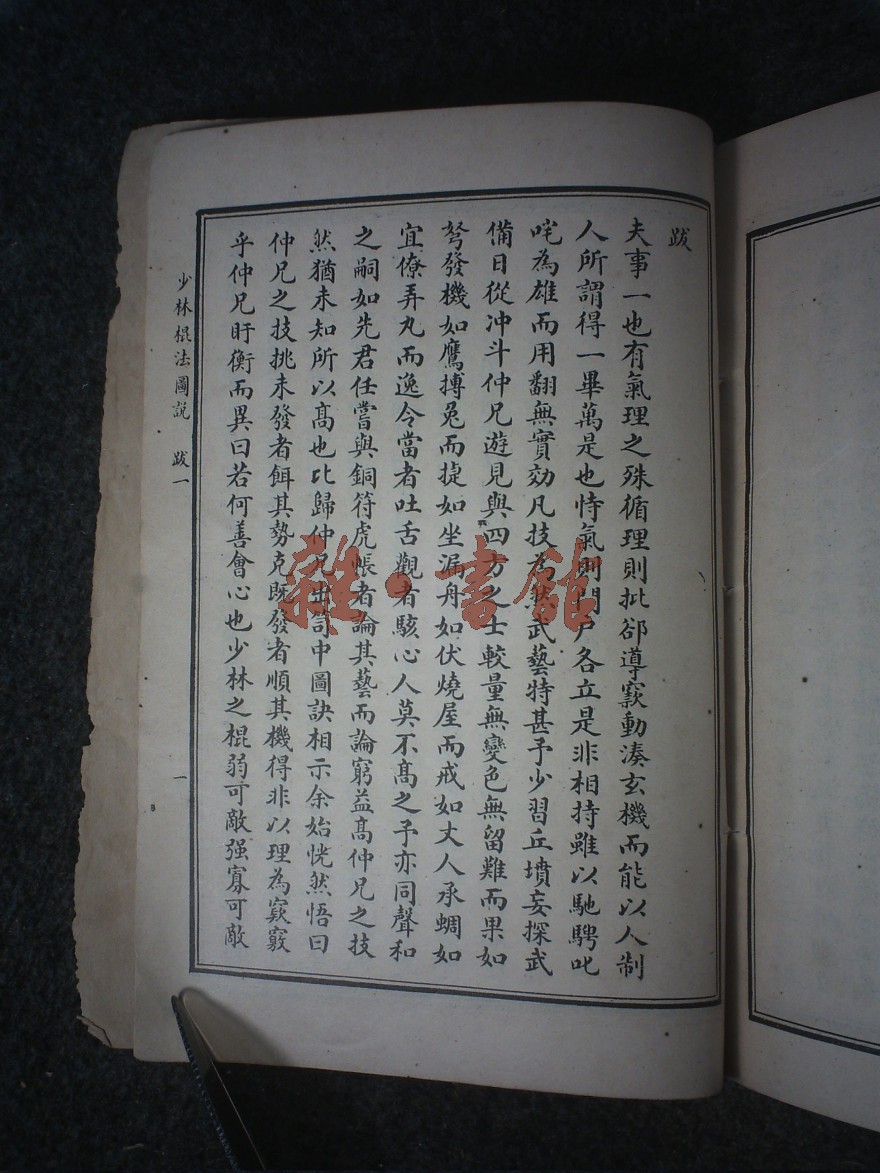 跋
夫事一也有氣理之殊循理則批郤導窾動湊玄機而能以人制
人所謂得一畢萬是也恃氣則門戶各立是非相持雖以馳騁叱
咤為雄而用翻無實効凡技為然武藝特甚予少習丘墳妄探武
備日從冲斗仲兄遊見與四方之士較量無變色無留難而果如
弩發機如鷹搏兔而捷如坐漏舟如伏燒屋而戒如丈人承蜩如
宜僚弄丸而逸令當者吐舌觀者駭心人莫不髙之予亦同聲和
之嗣如先君任嘗與銅符虎帳者論其藝而論窮益髙仲兄之技
然猶未知所以髙也比歸仲兄出笥中圖訣相示余始恍然悟曰
仲兄之技挑未發者餌其勢克既發者順其機得非以理為窾竅
乎仲兄盱衡而異曰若何善會心也少林之棍弱可敵强寡可敵
少林棍法圖説 跋一
一
雜·書館